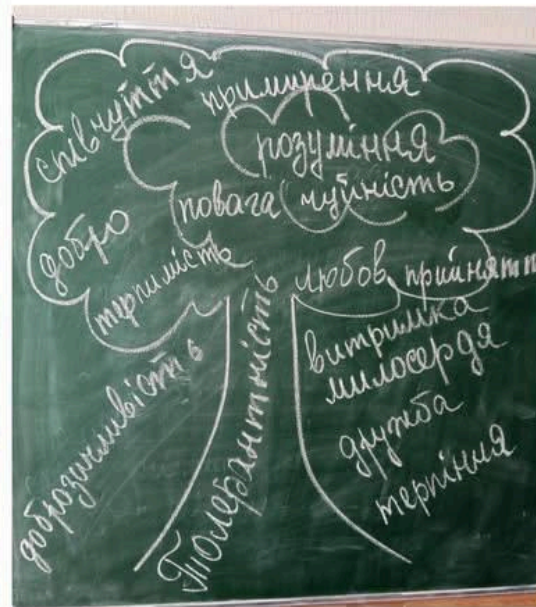 співчуття
примирення
розуміння
повага чуйність
добро
терпимість
любов прийнятт
доброзичливість
Толерантність
витримка
милосердя
дружба
терпіння